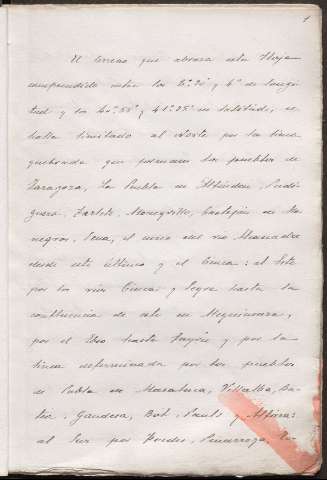 1
El terreno que abraza esta Hoja
comprendido entre los 3°20' y 4° de longi-
tud y los 40°55' y 41°25' de latitud, se
halla limitado al Norte por la linea
quebrada que forman los pueblos de
Zaragoza, La Puebla de Alfindén, Perdi-
guera, Farlete, Monegrillo, Castejón de Mo-
negros, Sena, el curso del rio Alcanadre
desde este último y el Cinca: al Este
por los rios Cinca y Segre hasta la
confluencia de este en Mequinenza,
por el Ebro hasta Fayón y por la
linea determinada por los pueblos
de Puebla de Masaluca, Villalba, Ba-
tea, Gandesa, Bot, Pauls y Alfara:
al Sur por Peñarroya,